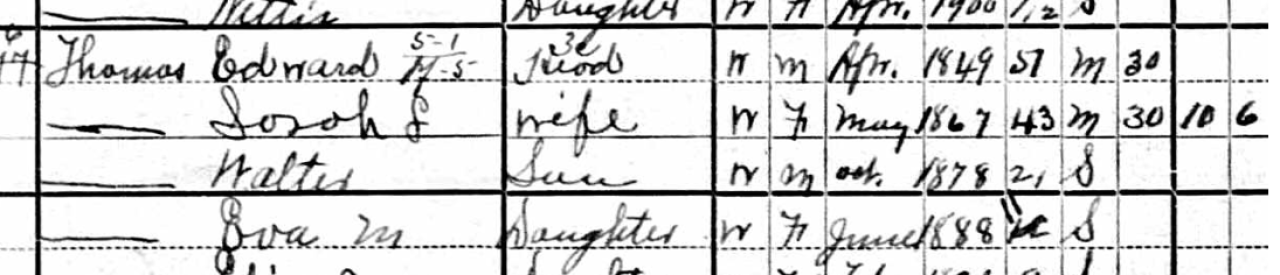 Nettie Daughter W F Apr. 1900 1/12 S
17 Thomas Edward 5-1 M-5 3c Head W M Apr. 1849 51 M 30
— Sarah L Wife W F May 1867 43 M 30 10 6
— Walter Son W M Oct. 1878 21 S
— Eva M Daughter W F June 1888 11 S